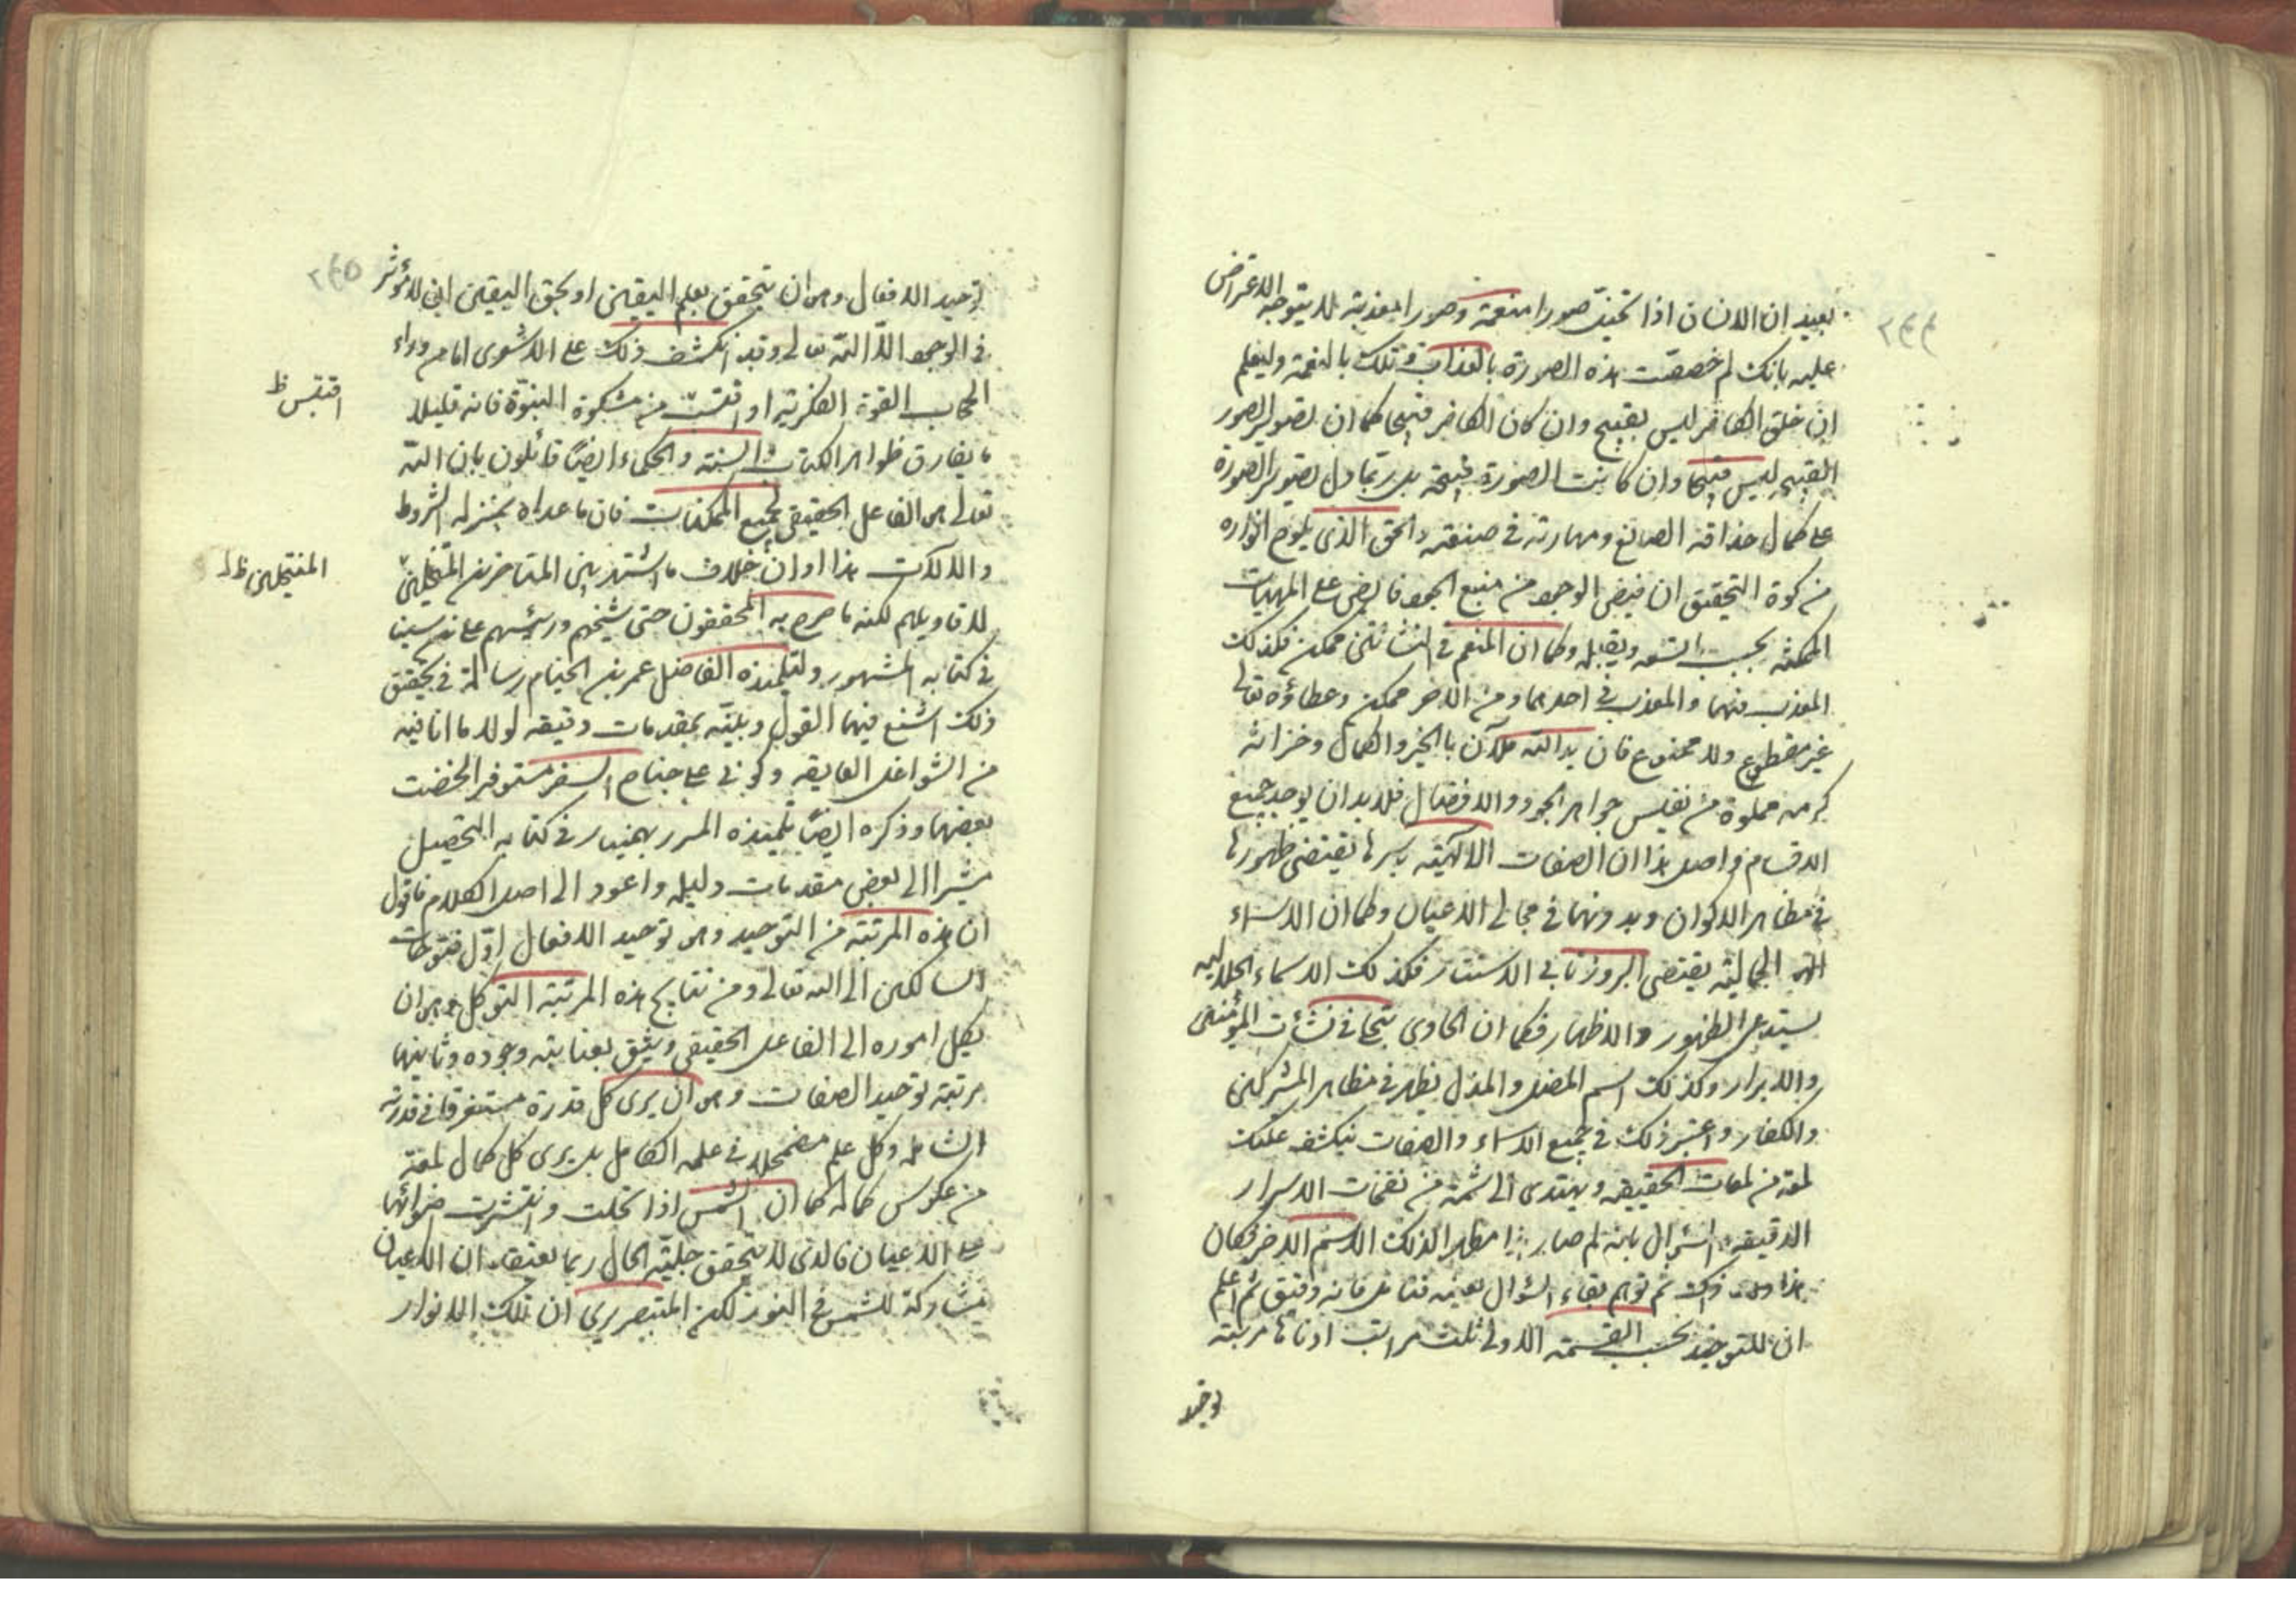 ٢٤٤
بعيد ان الانسان اذا تخيّل صورا منعمة وصورا معذبة لا يتوجه الاعتراض
عليه بانك لم خصصت هذه الصورة بالعذاب وتلك بالنعمة وليعلم
ان خلق الكافر ليس بقبيح وان كان الكافر قبيحا كما ان تصوير الصور
القبيحة ليس قبيحا وان كانت الصورة قبيحة بل ربما دل تصوير الصورة
على كمال حذاقة الصانع ومهارته في صنعته والحق الذي يلوح انواره
من كوة التحقيق ان فيض الوجود من منبع الجود فايض على المهيات
الممكنة بحسب ما تسعه ويقبله وكما ان المنعم في النشأتين ممكن فكذلك
المعذب فيهما والمعذب في احدهما دون الاخر ممكن وعطاؤه تعالى
غير مقطوع ولا ممنوع فان يد الله ملآن بالخير والكمال وخزائنه
كرمه مملوة من نفايس جواهر الجود والافضال فلا بد ان يوجد جميع
الاقسام واصل هذا ان الصفات الالهية باسرها يقتضي ظهورها
في مظاهر الاكوان وبدونها في مجالي الاعيان وكما ان الاسماء
الجمالية يقتضي البروز تابى الاستتار فكذلك الاسماء الجلالية
يستدعى الظهور والاظهار فكما ان الهادى يتجلى في نشأت المؤمنين
والابرار وكذلك اسم المضل والمذل يظهر في مظاهر المشركين
والكفار واعتبر ذلك في جميع الاسماء والصفات ينكشف عليك
لمعة من لمعات الحقيقة ويهتدى الى شمة من نفحات الاسرار
الدقيقة والسؤال بانه لم صار هذا مظهرا لذلك الاسم الاخر فكان
هذا ذلك ثم توهم بقاء السؤال بعينه فتامل فانه دقيق ثم اعلم
ان للتوحيد بحسب القسمة الاولى ثلث مراتب ادناها مرتبة
توحيد
٢٤٥
توحيد الافعال وهو ان يتحقق بعلم اليقين او بحق اليقين ان لا مؤثر
في الوجود الا الله تعالى وقد انكشف ذلك على الاشعرى اما من وراء
الحجاب القوة الفكرية او اقتبست من مشكوة النبوة فانه قليلا
ما يفارق ظواهر الكتاب والسنة والحكماء ايضا قائلون بان الله
تعالى هو الفاعل الحقيقي لجميع الممكنات فان ما عداه بمنزلة الشروط
والالات هذا وان خلاف ما اشتهر بين المتاخرين المنتحلين
لاقاويلهم لكنه ما صرح به المحققون حتى شيخهم ورئيسهم على بن سينا
في كتابه المشهور ولتلميذه الفاضل عمر بن الخيام رسالة في تحقيق
ذلك اشبع فيها القول وبيّنه بمقدمات دقيقة لولا ما انا فيه
من الشواغل العايقة وكوني على جناح السفر مستوفر الخضت
بعضها وذكره ايضا تلميذه المبرر بهمنيار في كتابه التحصيل
مشيرا الى بعض مقدمات دليله واعود الى اصل الكلام فاقول
ان هذه المرتبة من التوحيد وهو توحيد الافعال اول فتوحات
السالكين الى الله تعالى ومن نتايج هذه المرتبة التوكل وهو ان
يكل اموره الى الفاعل الحقيقي ويثق بعنايته وجوده وثانيها
مرتبة توحيد الصفات وهو ان يرى كل قدرة مستغرقا في قدرته
الشاملة وكل علم مضمحلا في علمه الكامل بل يرى كل كمال لمعة
من عكوس كماله كما ان الشمس اذا تجلت وانتشرت اضوائها
على الاعيان فالذى لا يتحقق جلية الحال ربما يعتقد ان الاعيان
مشاركة للشمس في النور لكن المتبصر يرى ان تلك الانوار
اقتبس ظ
المنتحلين ظ